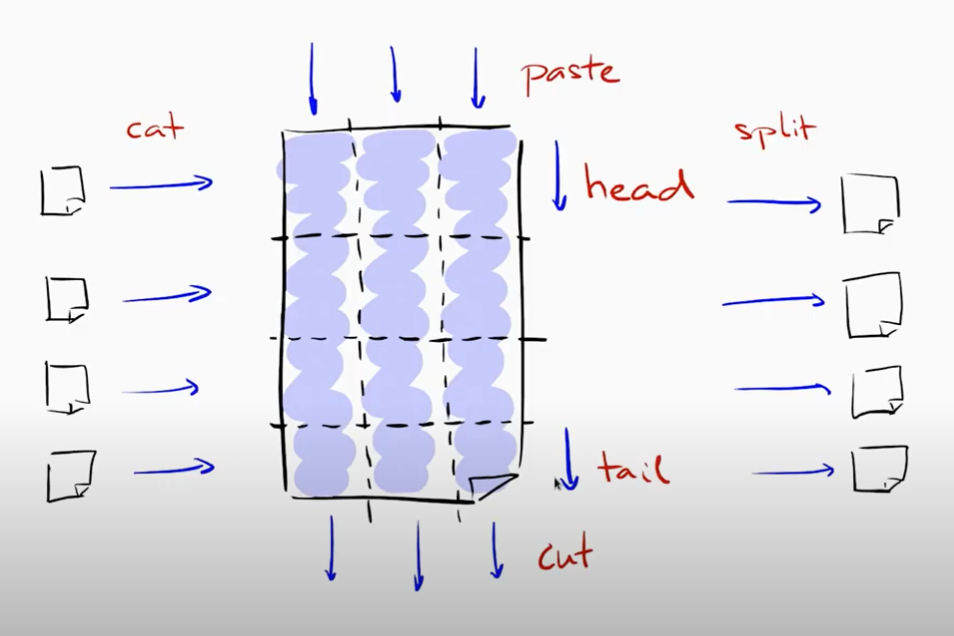 paste
cat
split
head
tail
cut